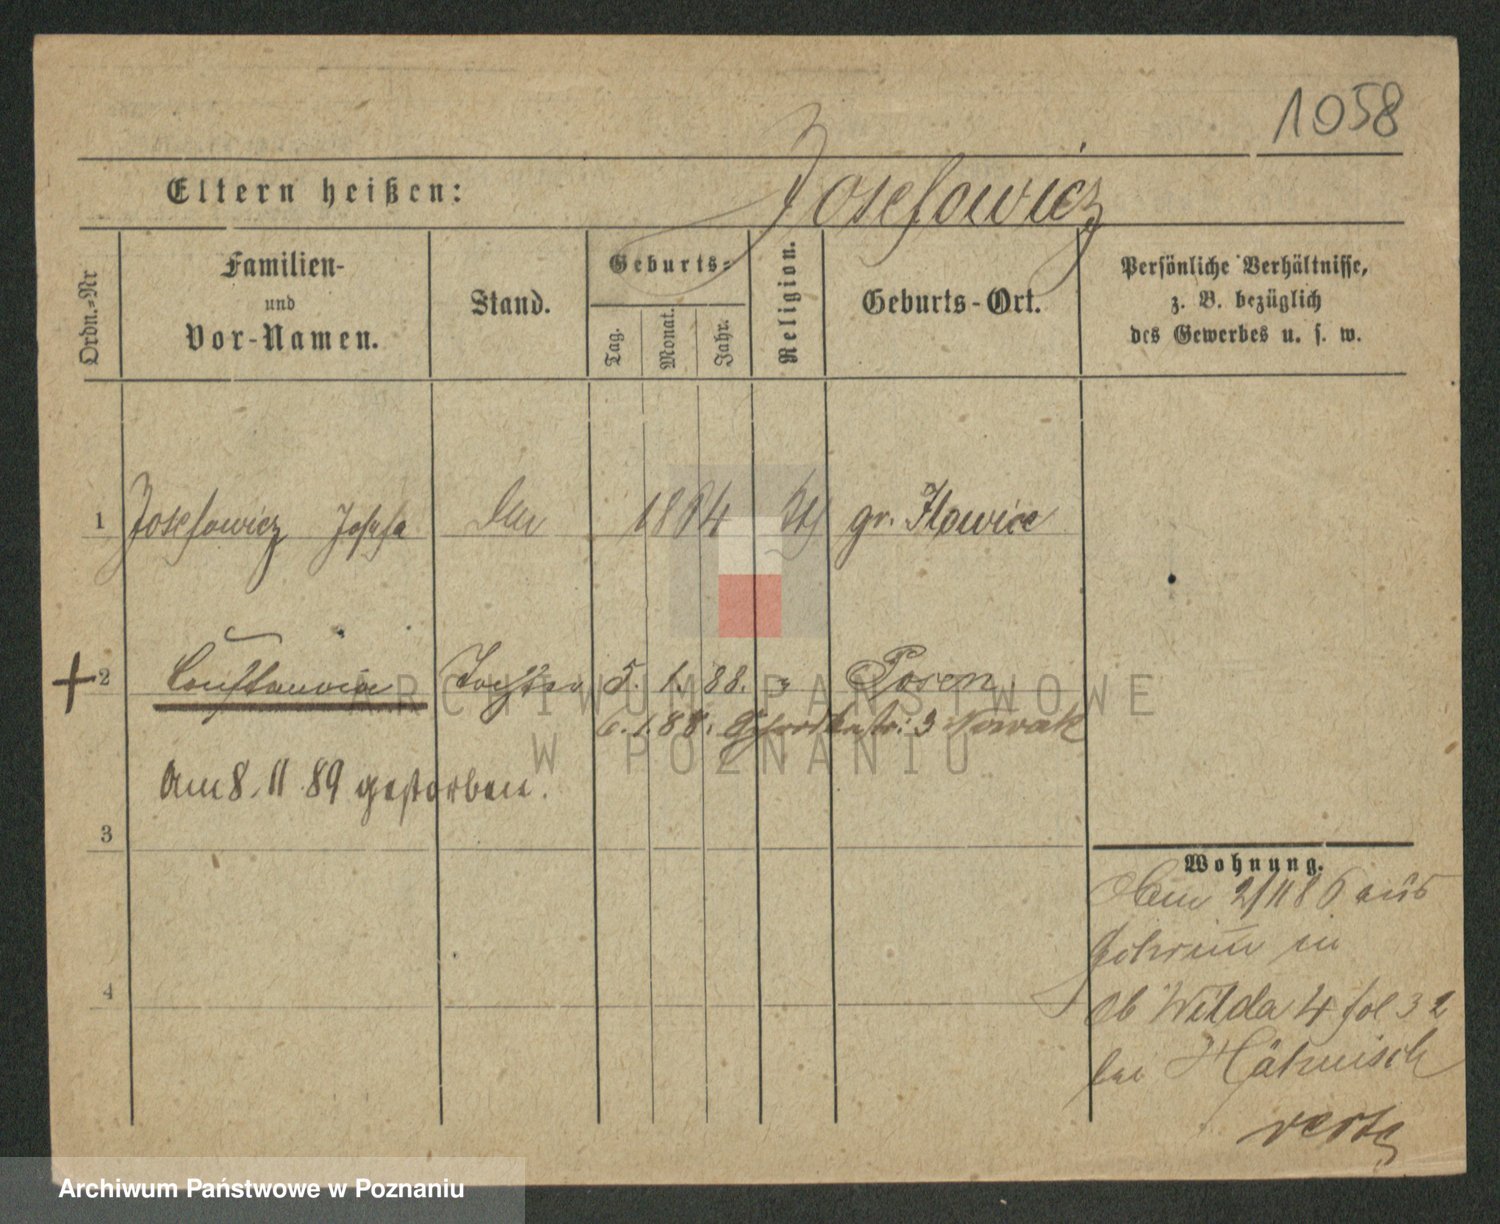 1058
Eltern heißen: Josefowicz
Ordn.-Nr
Familien-
und
Vor-Namen.
Stand.
Geburts-
Tag.
Monat.
Jahr.
Religion.
Geburts-Ort.
Persönliche Verhältnisse,
z. B. bezüglich
des Gewerbes u. s. w.
1 Josefowicz Josefa 1864 gr. Ilowice
+ 2 Constancia Tochter 5. 1. 88. " Posen
6. 1. 88. 3 Nowak
Am 8. 11 89 gestorben.
3
4
Wohnung.
2/11 86 aus
in
Ob Wilda 4 fol 32
bei Hähnisch
verte
ARCHIWUM PAŃSTWOWE
W POZNANIU
Archiwum Państwowe w Poznaniu